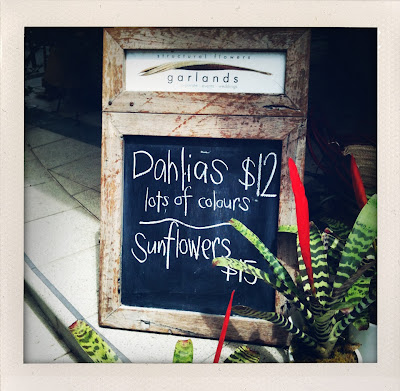 structural flowers
garlands
Dahlias $12
lots of colours
Sunflowers
$15